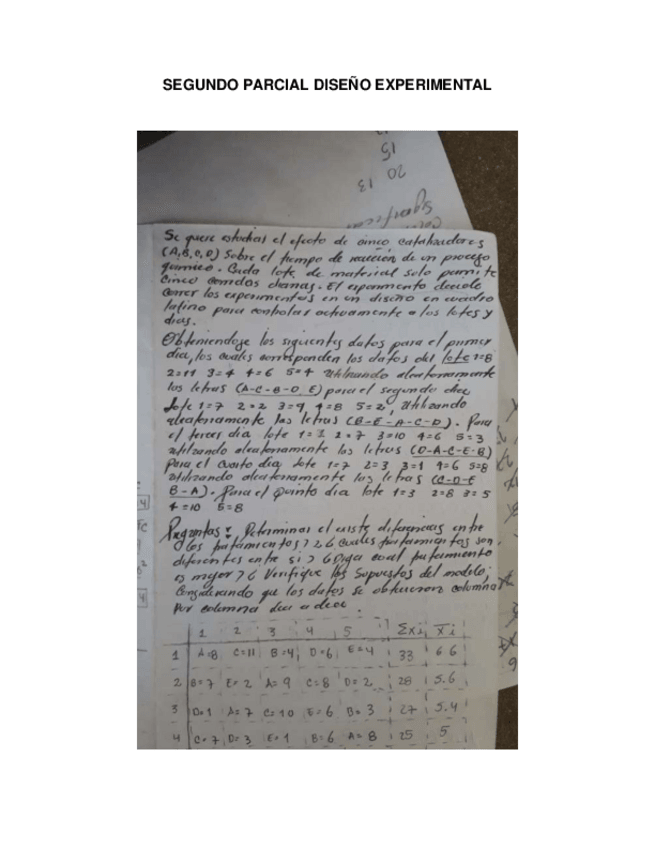 SEGUNDO PARCIAL DISEÑO EXPERIMENTAL
15
20 13
Se quiere estudiar el efecto de cinco catalizadores
(A,B,C,D) Sobre el tiempo de reacción de un proceso
químico. Cada lote de material solo permite
cinco corridas diarias. El experimento decide
correr los experimentos en un diseño en cuadro
latino para controlar activamente a los lotes y
dias.
Obteniendose los siguientes datos para el primer
dia, los cuales corresponden los datos del lote 1=8
2=11 3=4 4=6 5=4 utilizando aleatoriamente
las letras (A-C-B-D E) para el segundo dia
lote 1=7 2=2 3=9 4=8 5=2, utilizando
aleatoriamente las letras (B-E-A-C-D). Para
el tercer dia lote 1=1 2=7 3=10 4=6 5=3
utilizando aleatoriamente las letras (D-A-C-E-B)
Para el cuarto dia lote 1=7 2=3 3=1 4=6 5=8
utilizando aleatoriamente las letras (C-D-E
B-A). Para el quinto dia lote 1=3 2=8 3=5
4=10 5=8
Preguntas: Determinar si existe diferencias entre
los tratamientos? 2 6 cuales tratamientos son
diferentes entre si? 6 Diga cual tratamiento
es mejor? 6 Verifique los Supuestos del modelo;
Considerando que los datos se obtuvieron columna
Por columna dia a dia.
1 2 3 4 5 Σxi x̄i
1 A=8 C=11 B=4 D=6 E=4 33 6 6
2 B=7 E=2 A=9 C=8 D=2 28 5.6
3 D=1 A=7 C=10 E=6 B=3 27 5.4
4 C=7 D=3 E=1 B=6 A=8 25 5